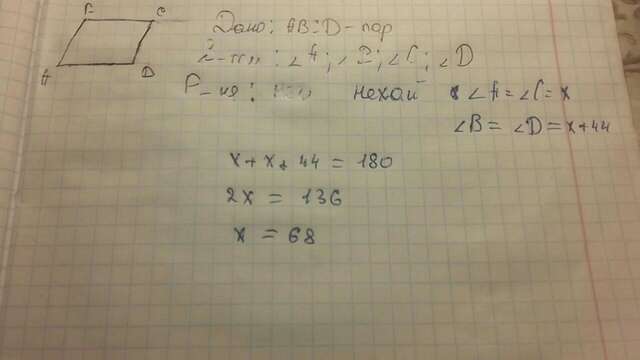 B C
A D
Дано: ABCD - пар
∠A; ∠B; ∠C; ∠D
Р-ня: нехай ∠A = ∠C = x
∠B = ∠D = x + 44
x + x + 44 = 180
2x = 136
x = 68